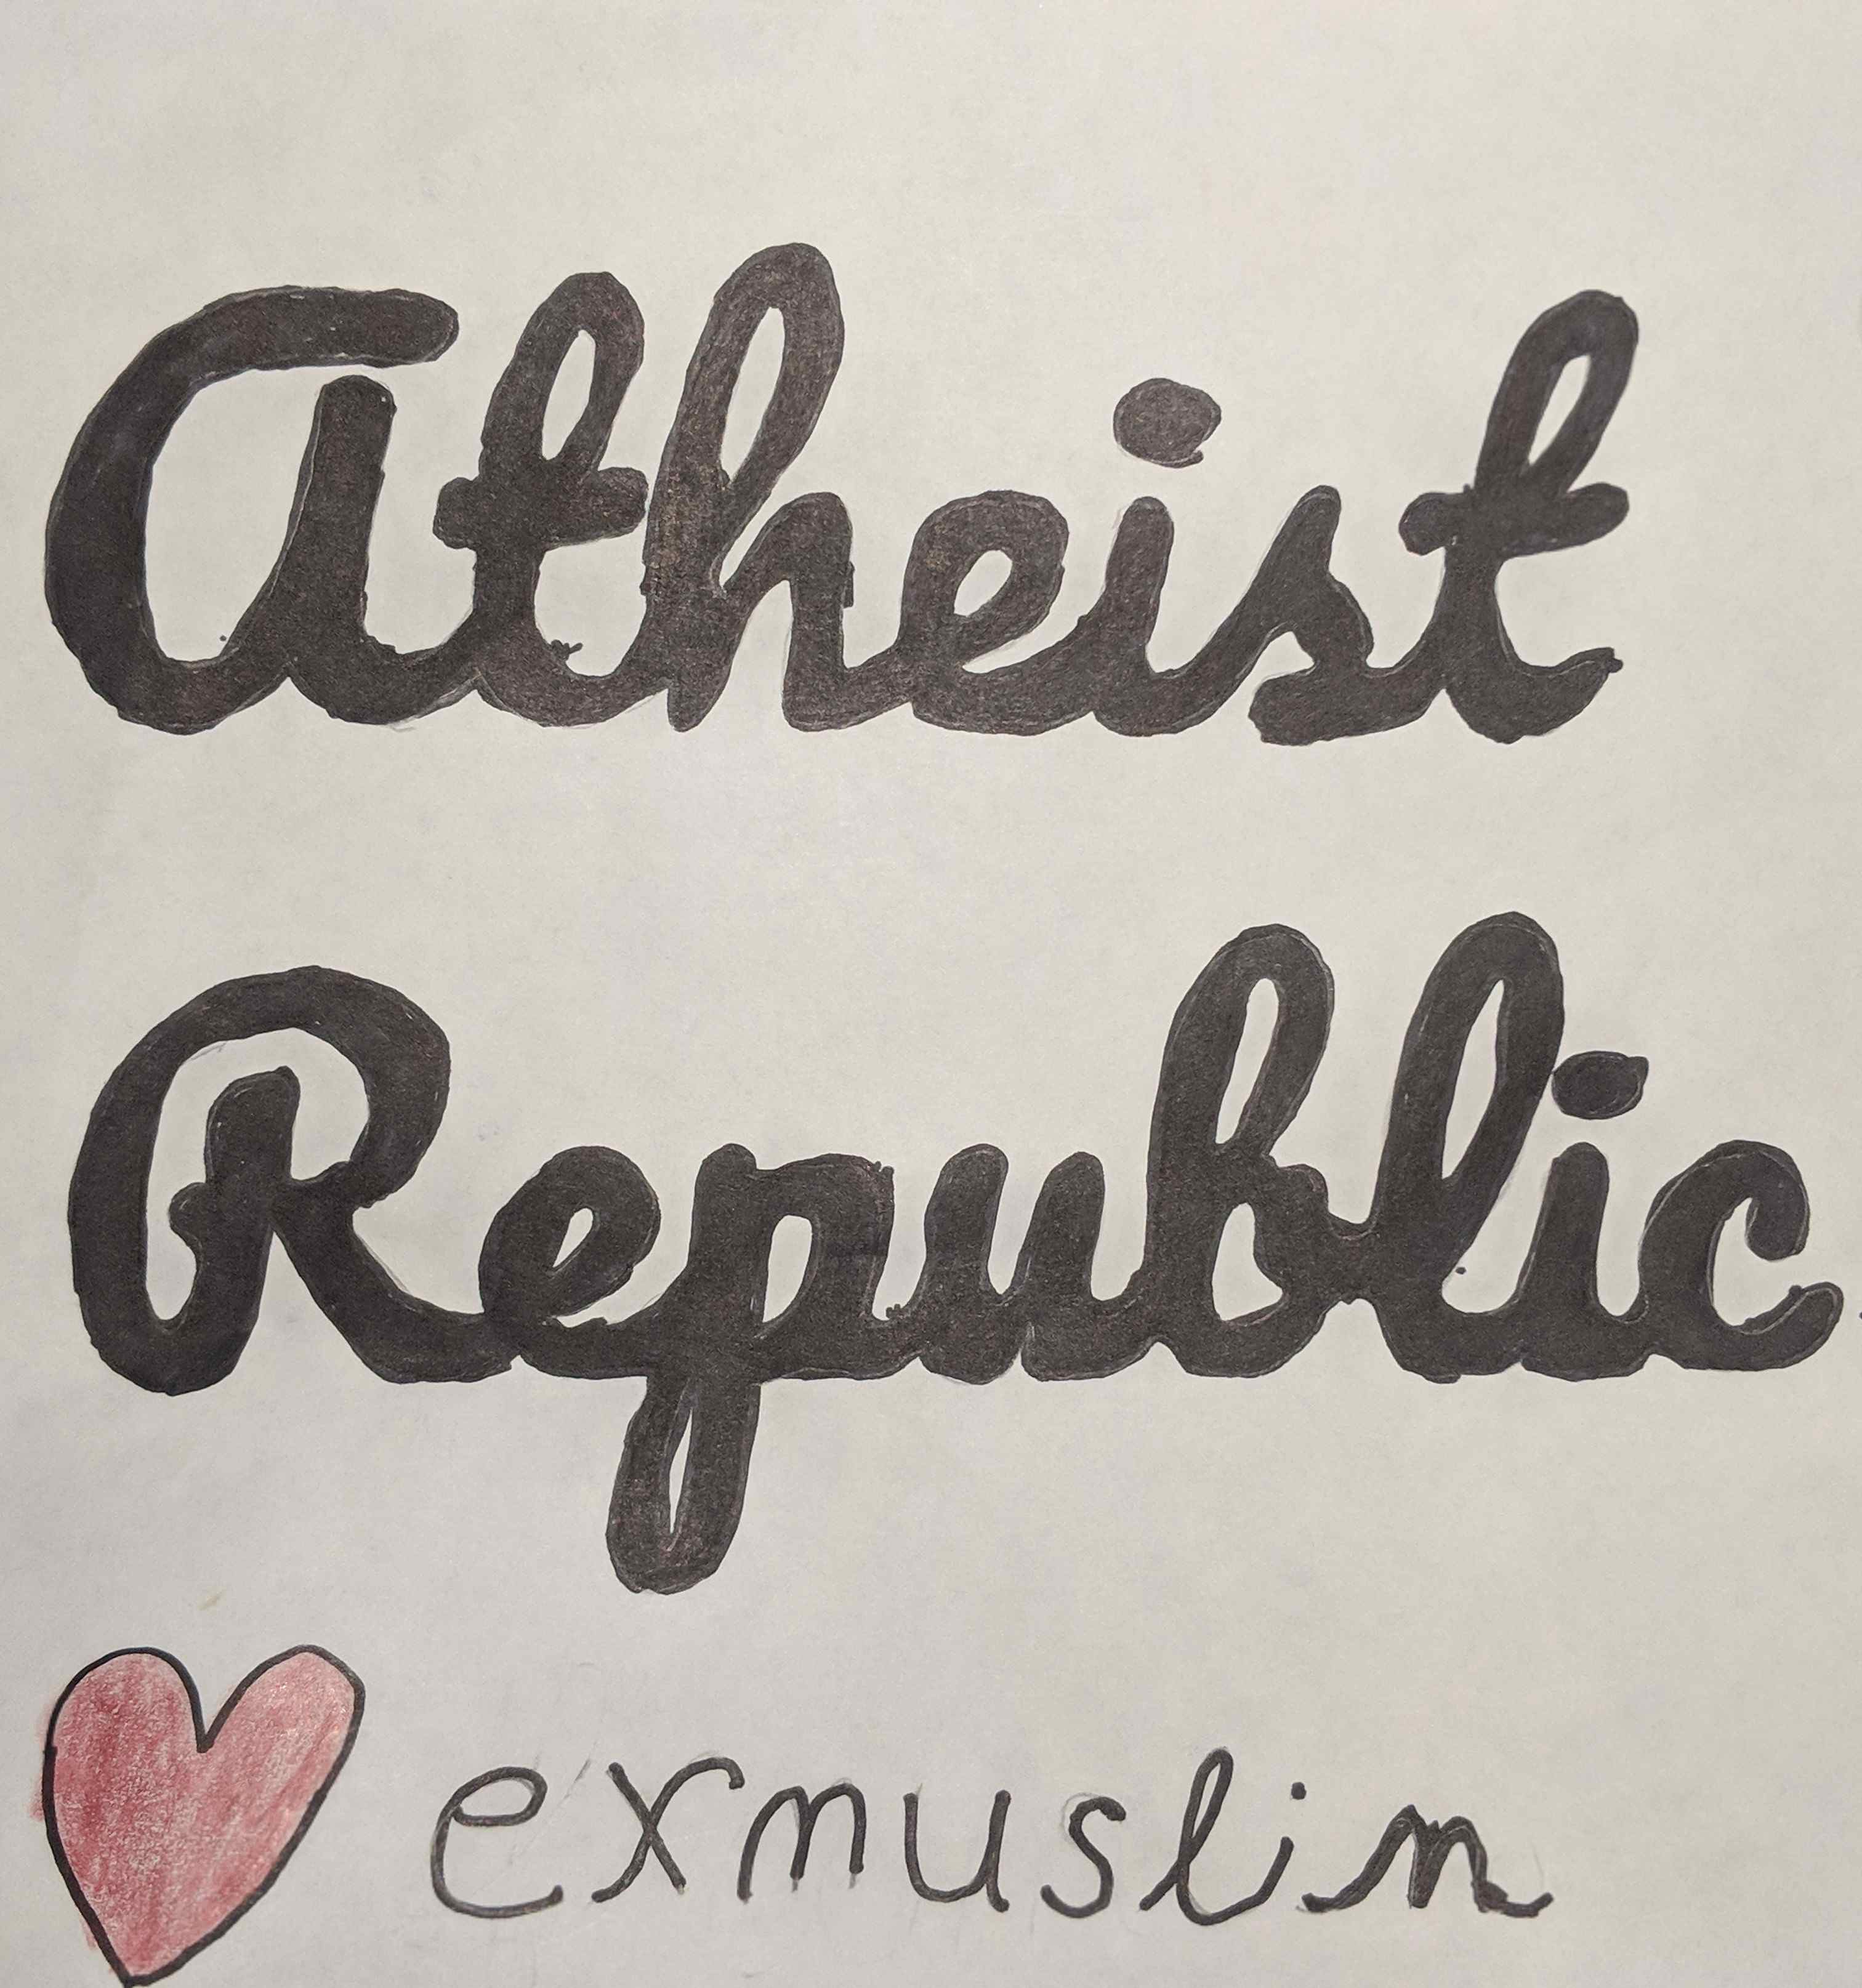 Atheist
Republic
exmuslim